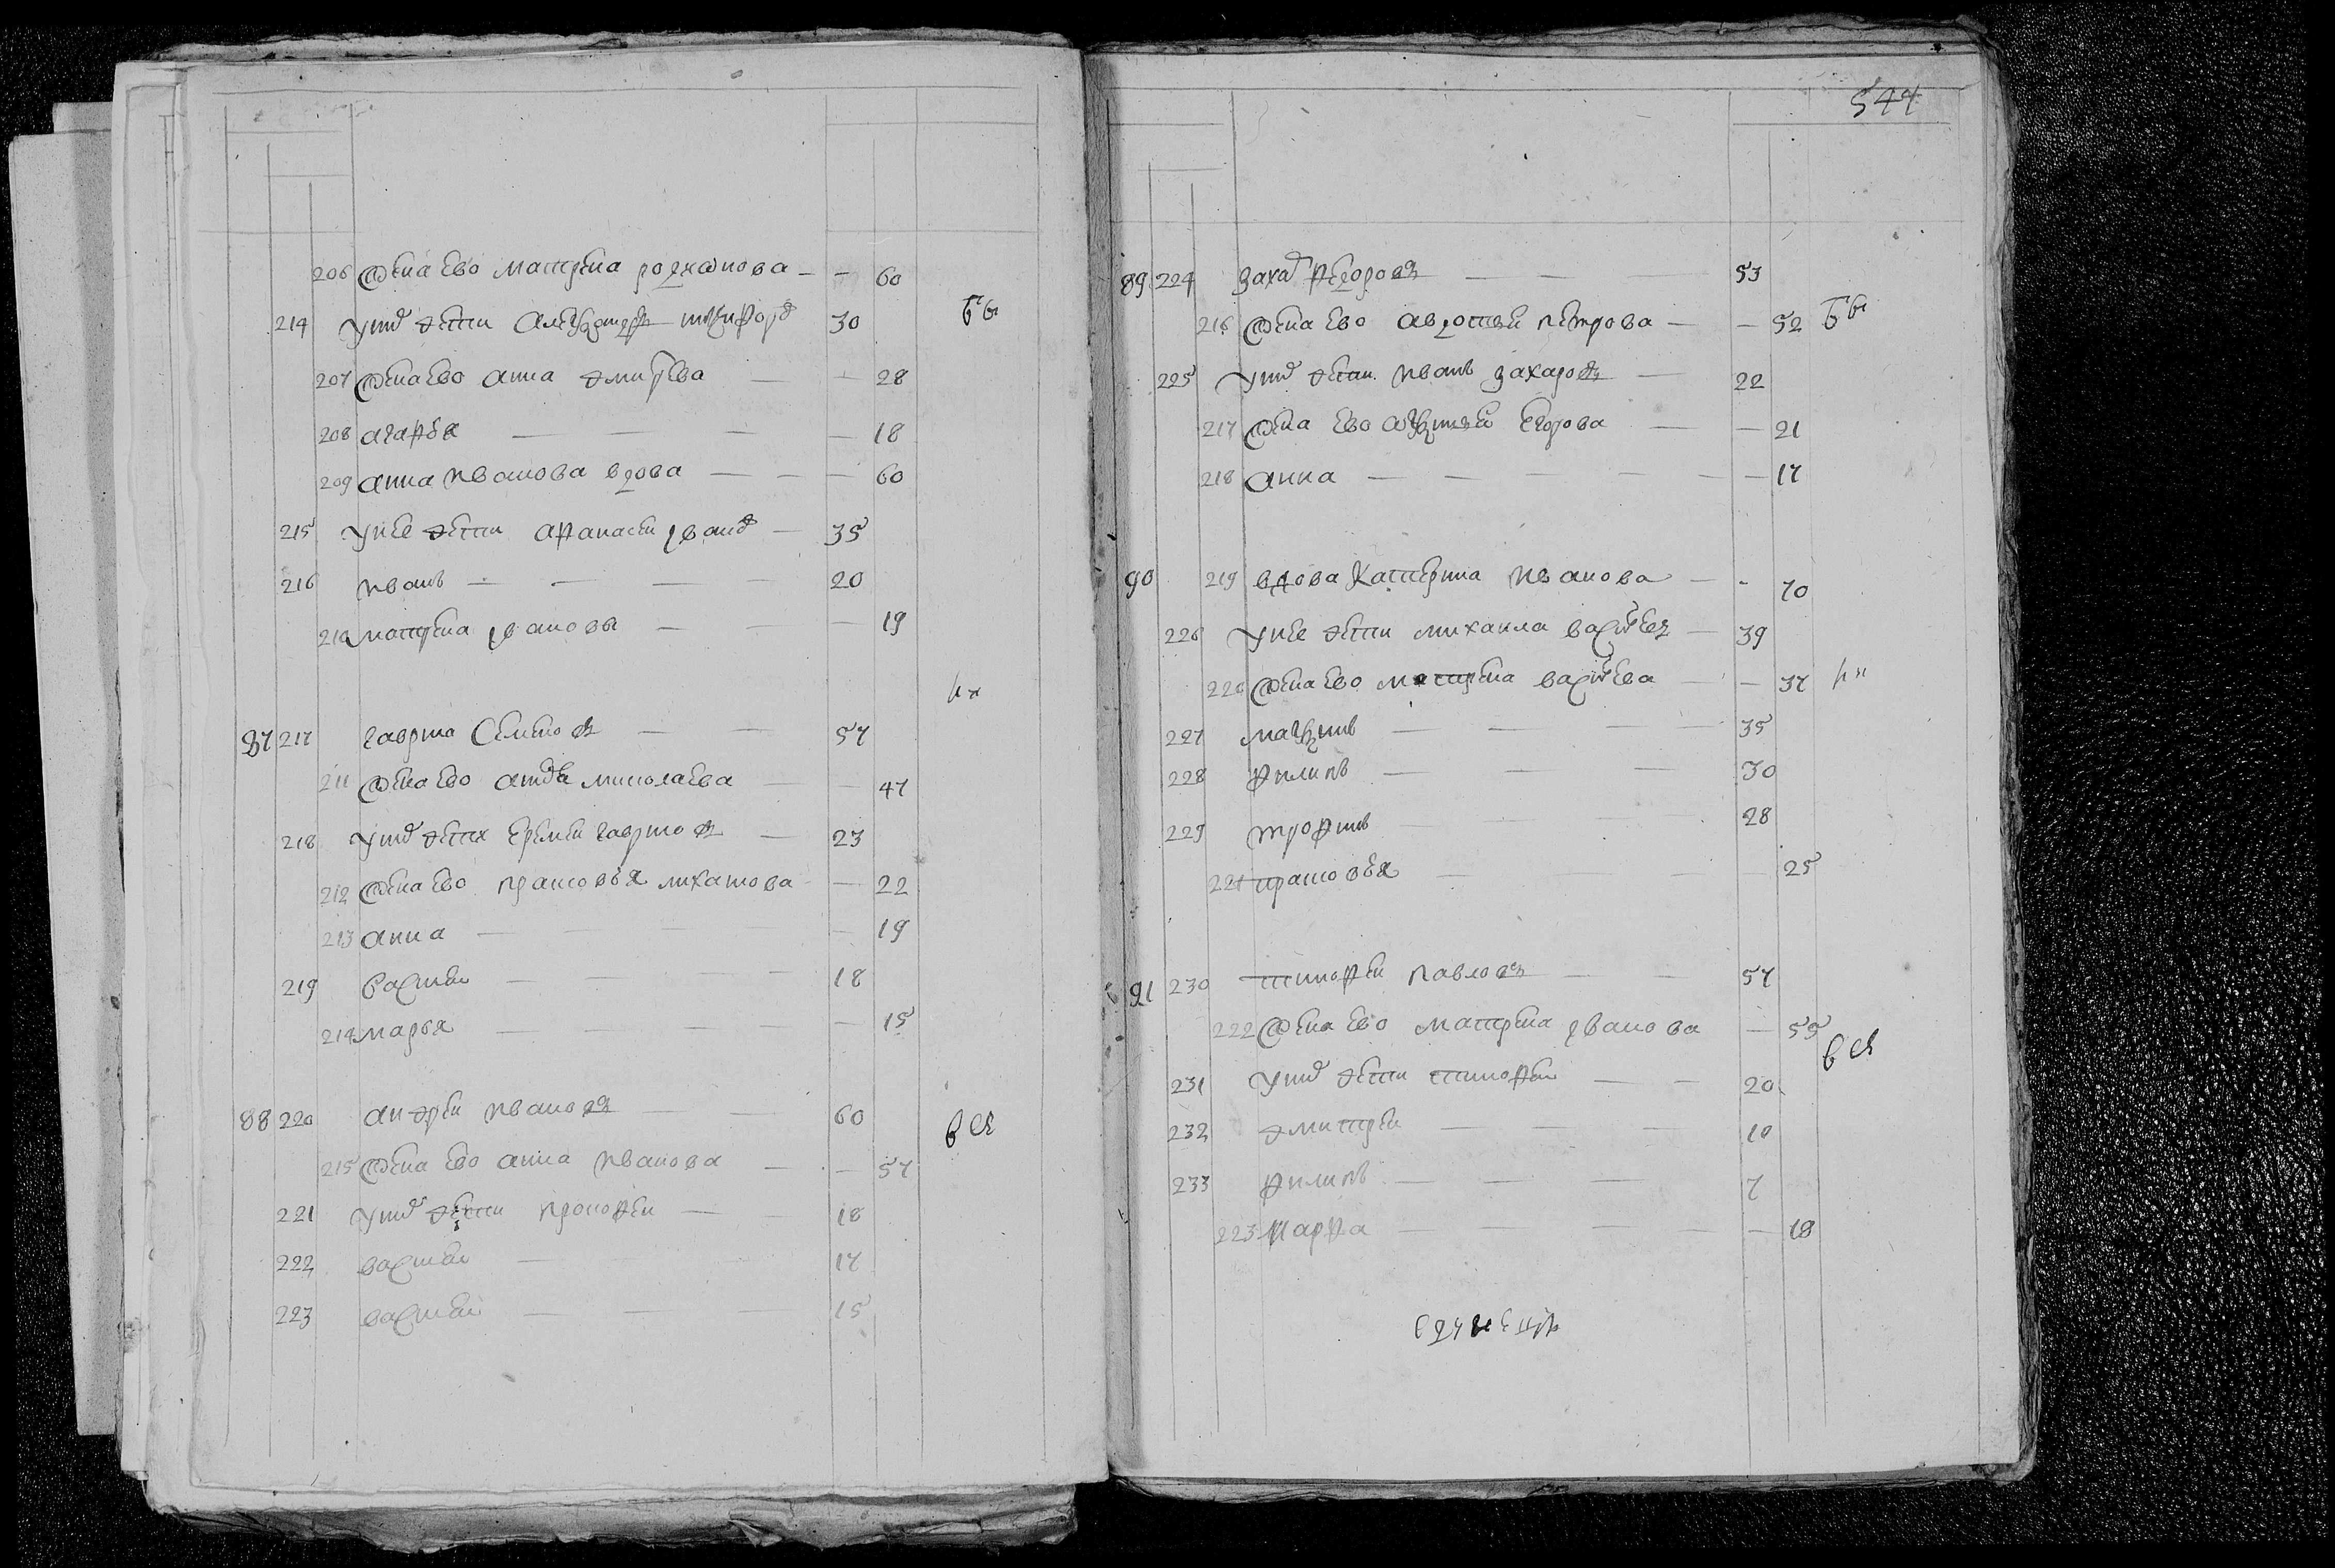 206 жена ево матрена родионова — — 60
214 у них дети александръ никифоров 30
бы
207 жена ево анна дмитрева — — 28
208 агафья — — — — 18
209 анна иванова вдова — — — 60
215 у нее дети афанасеи иванов — 35
216 иванъ — — — — 20
210 матрена иванова — — — 19
87 217 гаврила семенов — — 57
211 жена ево николаева — — 47
218 у них дети еремеи гаврилов — 23
212 жена ево прасковья — 22
213 анна — — — 19
219 василеи — — — — 18
214 марья — — — — — 15
88 220 андреи иванов — — 60
215 жена ево анна иванова — — 57
вся
221 у них дети прокофеи — — 18
222 василеи — — 17
223 василеи — — — 15
544
89 224 захар федоров — — — 53
216 жена ево авдотья петрова — — 52
бы
225 у них дети иванъ захаров — 22
217 жена ево егорова — — 21
218 анна — — — — — — 17
90 219 вдова катерина иванова — - 70
226 у нее дети михаила васильев — 39
220 жена ево матрена васильева — — 37
227 максимъ — — — 35
228 филипъ — — — 30
229 трофимъ — — 28
221 прасковья — — — 25
91 230 тимофеи павлов — — 57
222 жена ево матрена иванова — 55
вся
231 у них дети тимофеи — — 20
232 дмитреи — — — 10
233 филипъ — — — 7
223 марфа — — — — — 18